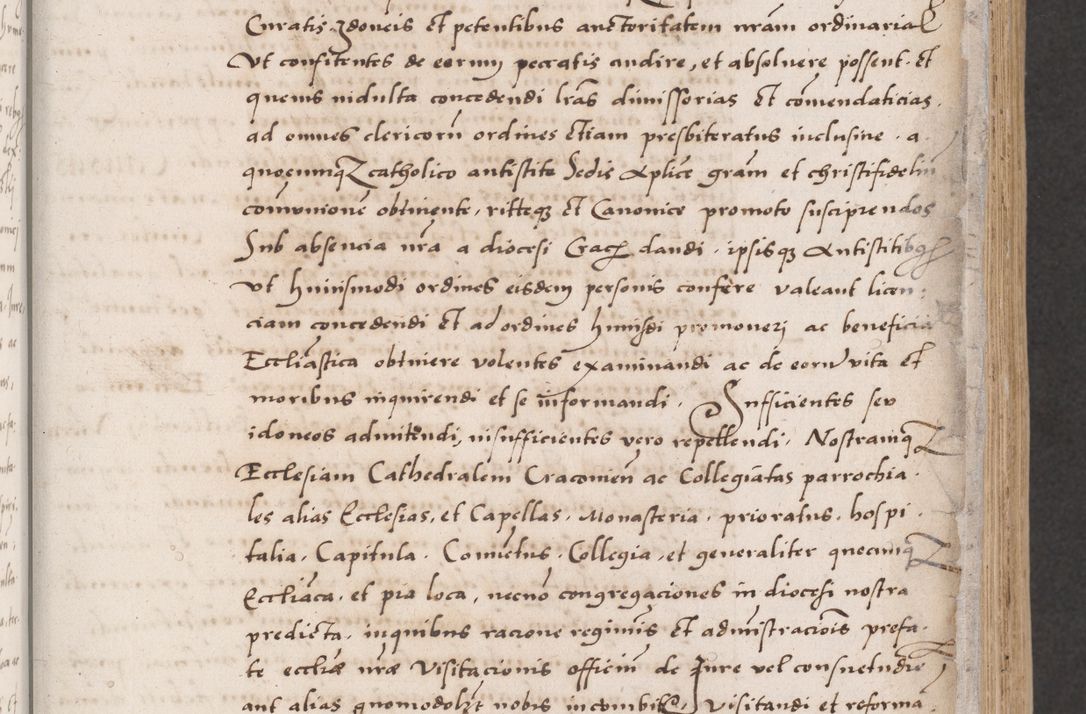 Curatis Idoneis et petentibus auctoritatem nram ordinariā
Ut confitentes de eorum peccatis audire, et absoluere possent. et
quemuis indulta concedendi lras dimissorias et comendaticias.
ad omnes clericorū ordines etiam presbiteratus inclusiue. a
quocumq catholico antistite Sedis Aplice gram et christifideliū
comunione obtinente, ritteq et Canonice promoto suscipiendos
Sub absencia nra a diocesi Crac dandi. ipsisq Antistitibq
ut huiusmodi ordines eisdem personis conferre valeant licen:
ciam concedendi et ad ordines huiusdi promoueri ac beneficia
Ecclīastica obtinere volentes examinandi ac de eorū vita et
moribus inquirendi et se informandi. Sufficientes seu
idoneos admitendi, insufficientes vero repellendi. Nostramq
Ecclesiam Cathedralem Cracouien ac Collegiatas parrochia.
les alias Ecclesias, et Capellas. Monasteria. prioratus. hospi.
talia. Capitula. Conuetus. Collegia, et generaliter quecumq
Eccliāca. et pia loca, necnō congregaciones in diocesi nostra
predicta. in quibus racione regimis et admistraciois prefa.
te eccliæ nræ Visitacionis officiū de Jure vel consuetudie
aut alias quomodolzt nobis incombit. Visitandi et reforma.